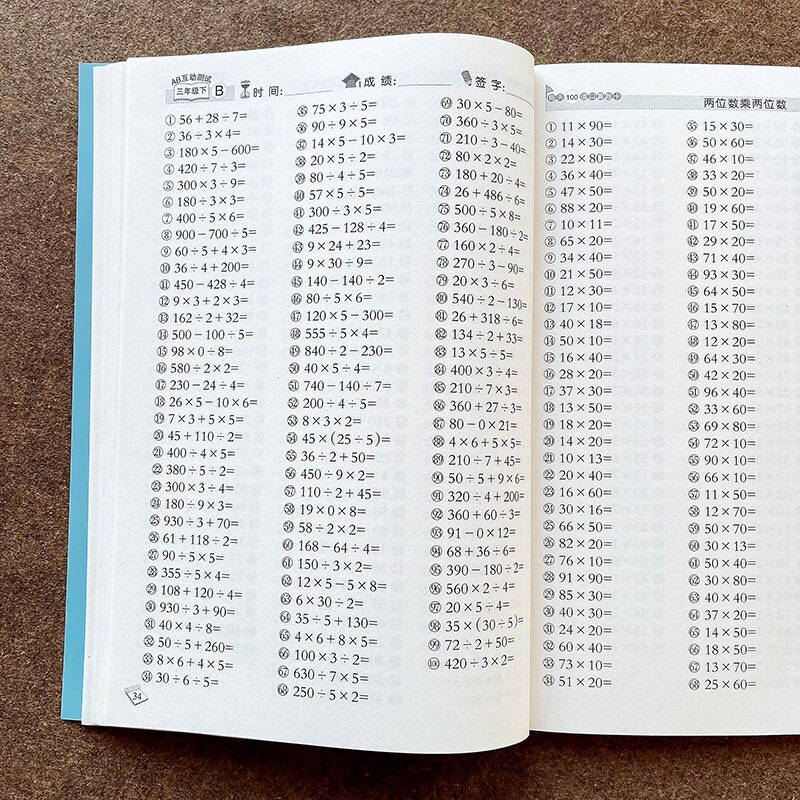 AB互动测试
三年级下 B 时间: 成绩: 签字:
① 56+28÷7=
② 36÷3×4=
③ 180×5-600=
④ 420÷7÷3=
⑤ 300×3÷9=
⑥ 180÷3×3=
⑦ 400÷5×6=
⑧ 900-700÷5=
⑨ 60÷5+4×3=
⑩ 36÷4+200=
⑪ 450-428÷4=
⑫ 9×3+2×3=
⑬ 162÷2+32=
⑭ 500-100÷5=
⑮ 98×0÷8=
⑯ 580÷2×2=
⑰ 230-24÷4=
⑱ 26×5-10×6=
⑲ 7×3+5×5=
⑳ 45+110÷2=
㉑ 400÷4×5=
㉒ 380÷5÷2=
㉓ 300×3÷4=
㉔ 180÷9×3=
㉕ 930÷3+70=
㉖ 61+118÷2=
㉗ 90÷5×5=
㉘ 355÷5×4=
㉙ 108+120÷4=
㉚ 930÷3+90=
㉛ 40×4÷8=
㉜ 50÷5+260=
㉝ 8×6+4×5=
㉞ 30÷6÷5=
㉟ 75×3÷5=
㊱ 90÷9×5=
㊲ 14×5-10×3=
㊳ 20×5÷2=
㊴ 80÷4÷5=
㊵ 57×5÷5=
㊶ 300÷3×5=
㊷ 425-128÷4=
㊸ 9×24+23=
㊹ 9×30÷9=
㊺ 140-140÷2=
㊻ 80÷5×6=
㊼ 120×5-300=
㊽ 555÷5×4=
㊾ 840÷2-230=
㊿ 40×5÷4=
51 740-140÷7=
52 200÷4÷5=
53 8×3×2=
54 45×(25÷5)=
55 36÷2+50=
56 450÷9×2=
57 110÷2+45=
58 19×0×8=
59 58÷2×2=
60 168-64÷4=
61 150÷3×2=
62 12×5-5×8=
63 6×30÷2=
64 35÷5+130=
65 4×6+8×5=
66 100×3÷2=
67 630÷7×5=
68 250÷5×2=
69 30×5-80=
70 360÷3×5=
71 210÷3-40=
72 80×2×2=
73 180+20÷4=
74 26+486÷6=
75 500÷5×8=
76 360-180÷2=
77 160×2÷4=
78 270÷3-90=
79 20×3÷6=
80 540÷2-130=
81 26+318÷6=
82 134÷2+33=
83 13×5÷5=
84 400×3÷4=
85 210÷7×3=
86 360+27÷3=
87 80-0×21=
88 4×6+5×5=
89 210÷7+45=
90 50÷5+9×6=
91 320÷4+200=
92 360+60÷3=
93 91-0×12=
94 68+36÷6=
95 390-180÷2=
96 560×2÷4=
97 20×5÷4=
98 35×(30÷5)=
99 72÷2+50=
100 420÷3×2=
34
每天100道口算题卡 两位数乘两位数
① 11×90=
② 14×30=
③ 22×80=
④ 36×40=
⑤ 47×50=
⑥ 88×20=
⑦ 10×11=
⑧ 65×20=
⑨ 34×40=
⑩ 21×50=
⑪ 12×30=
⑫ 17×10=
⑬ 40×18=
⑭ 50×10=
⑮ 16×40=
⑯ 28×20=
⑰ 37×30=
⑱ 13×50=
⑲ 18×20=
⑳ 14×20=
㉑ 10×13=
㉒ 20×40=
㉓ 16×60=
㉔ 30×16=
㉕ 66×50=
㉖ 82×20=
㉗ 76×10=
㉘ 91×90=
㉙ 85×30=
㉚ 40×30=
㉛ 24×20=
㉜ 60×40=
㉝ 73×10=
㉞ 51×20=
㉟ 15×30=
㊱ 50×60=
㊲ 46×10=
㊳ 33×20=
㊴ 50×20=
㊵ 19×60=
㊶ 17×50=
㊷ 29×20=
㊸ 71×40=
㊹ 93×30=
㊺ 64×50=
㊻ 15×70=
㊼ 13×80=
㊽ 12×20=
㊾ 64×30=
㊿ 42×20=
51 96×40=
52 33×60=
53 69×80=
54 72×10=
55 90×10=
56 66×10=
57 11×50=
58 12×70=
59 50×70=
60 30×13=
61 50×40=
62 30×80=
63 40×40=
64 37×20=
65 14×50=
66 18×50=
67 13×70=
68 25×60=